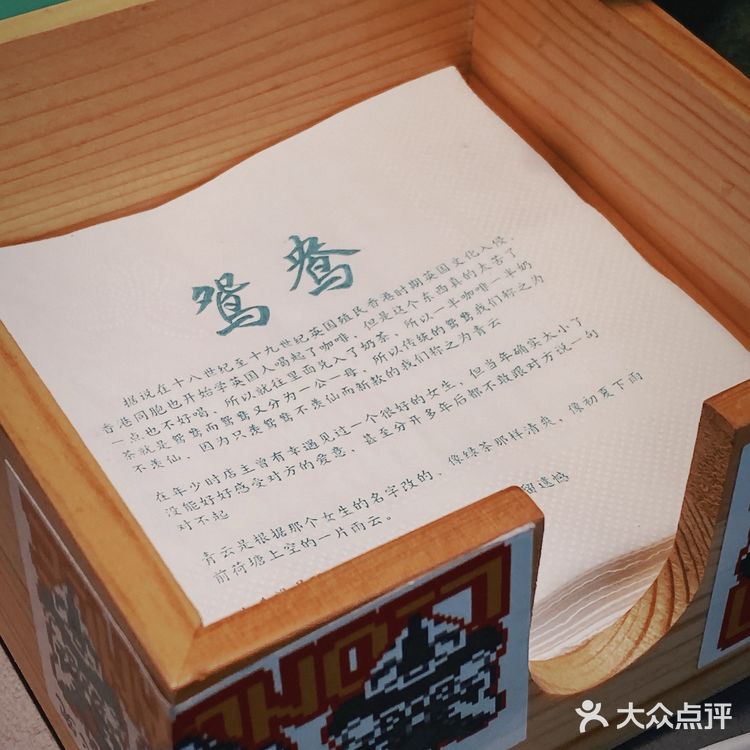 鸳鸯
据说在十八世纪至十九世纪英国殖民香港时期英国文化入侵，
香港同胞也开始学英国人喝起了咖啡，但是这个东西真的太苦了
一点也不好喝，所以就往里面兑入了奶茶，所以一半咖啡一半奶
茶就是鸳鸯而鸳鸯又分为一公一母，所以传统的鸳鸯我们称之为
不羡仙，因为只羡鸳鸯不羡仙而新款的我们称之为青云
在年少时店主曾有幸遇见过一个很好的女生，但当年确实太小了
没能好好感受对方的爱意，甚至分开多年后都不敢跟对方说一句
对不起
青云是根据那个女生的名字改的、像绿茶那样清爽，像初夏下雨
前荷塘上空的一片雨云。
留遗憾
大众点评